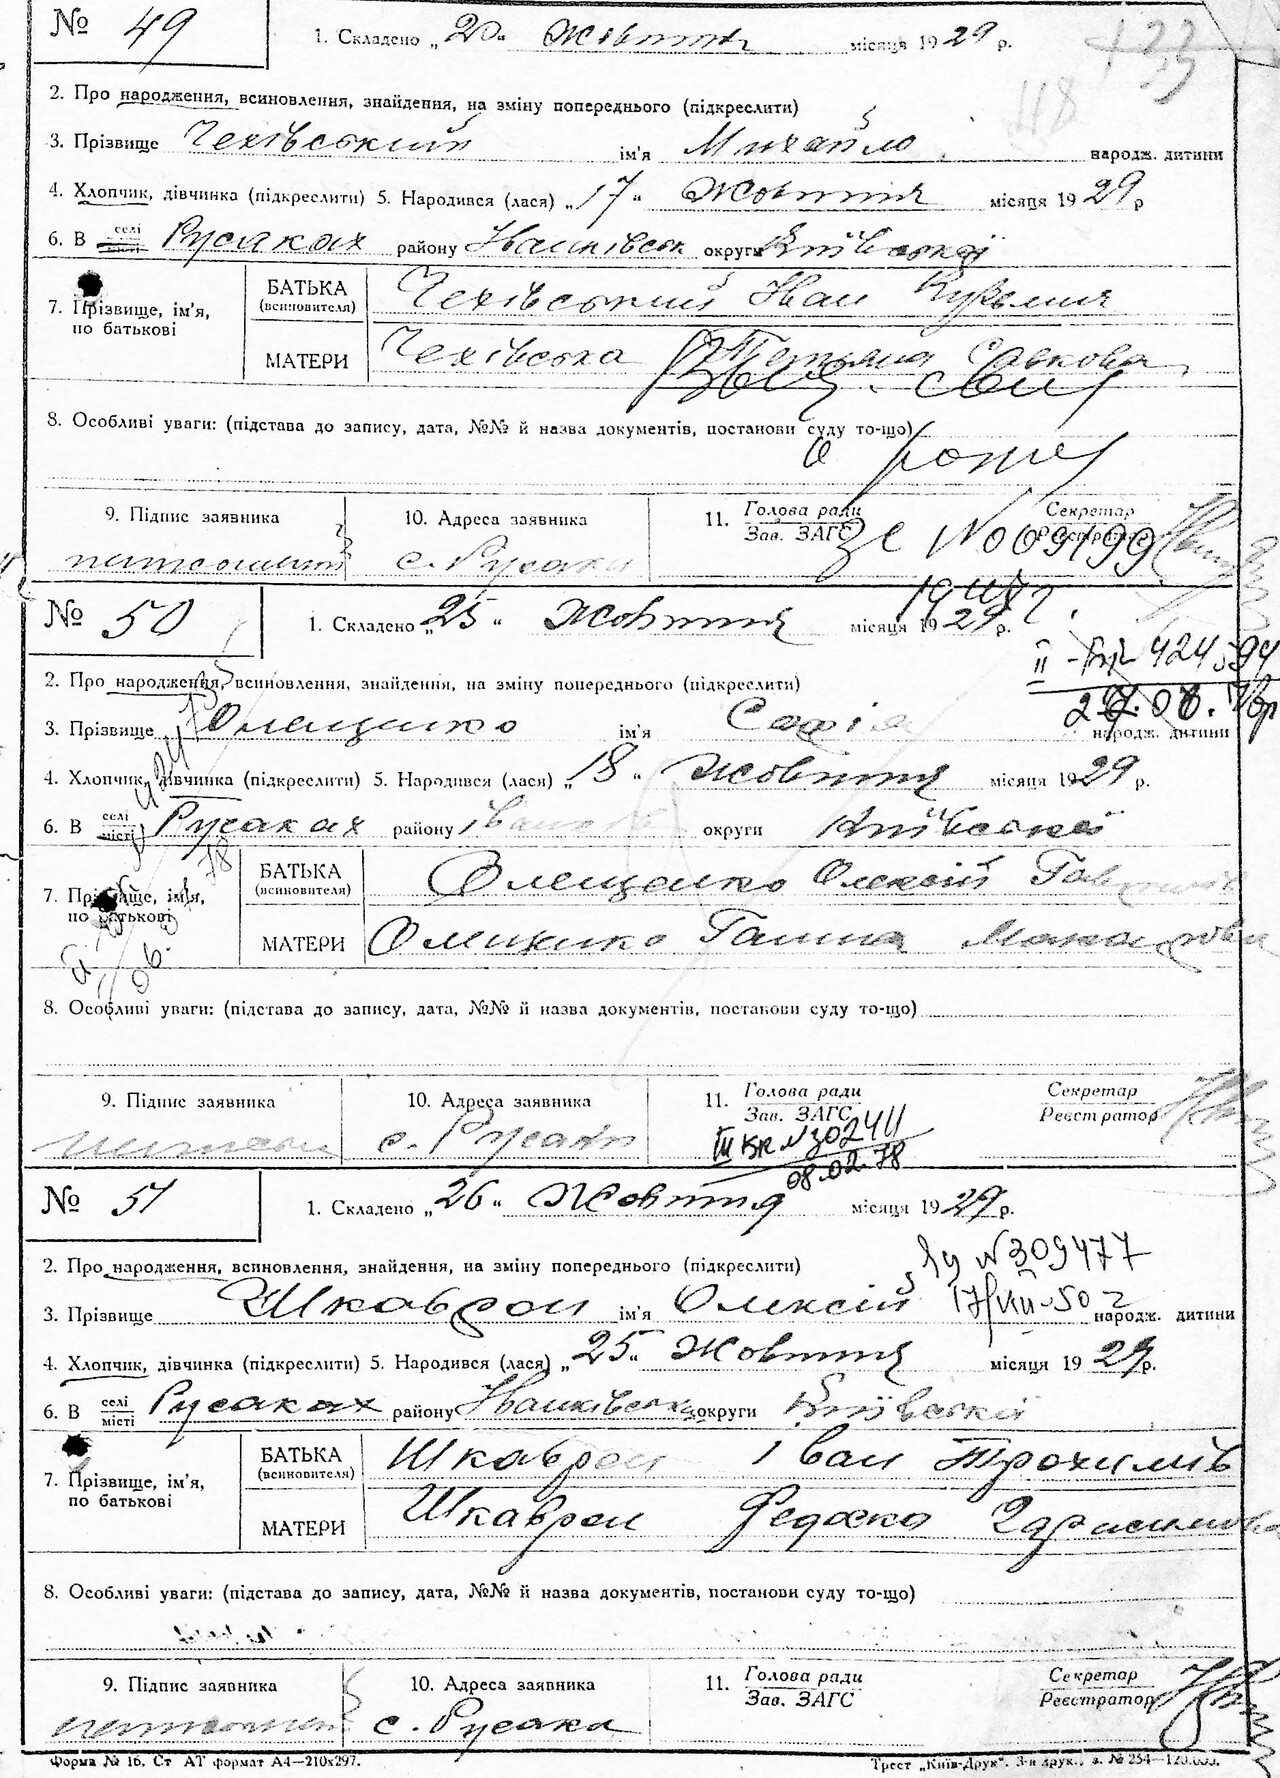 № 49
1. Складено „20“ жовтня місяця 1929 р.
2. Про народження, всиновлення, знайдення, на зміну попереднього (підкреслити)
118
3. Прізвище Чехівський ім'я Михайло народж. дитини
4. Хлопчик, дівчинка (підкреслити) 5. Народився (лася) „17“ жовтня місяця 1929 р
6. В селі Русаках району Іванківськ округи Київської
7. Прізвище, ім'я, по батькові
БАТЬКА (всиновителя) Чехівський Іван Кузьмич
МАТЕРИ Чехівська Тетьяна Савкова
8. Особливі уваги: (підстава до запису, дата, №№ й назва документів, постанови суду то-що)
9. Підпис заявника
10. Адреса заявника
11. Голова ради Зав. ЗАГС
Секретар Реєстратор
с. Русаки
№ 50
1. Складено „25“ Жовтня місяця 1929 р.
2. Про народження, всиновлення, знайдення, на зміну попереднього (підкреслити)
3. Прізвище ім'я Софія народж. дитини
4. Хлопчик, дівчинка (підкреслити) 5. Народився (лася) „18“ жовтня місяця 1929 р.
6. В селі місті Русаках району округи Київської
7. Прізвище, ім'я, по батькові
БАТЬКА (всиновителя) Олещенко Олексій
МАТЕРИ Галина
8. Особливі уваги: (підстава до запису, дата, №№ й назва документів, постанови суду то-що)
9. Підпис заявника
10. Адреса заявника
11. Голова ради Зав. ЗАГС
Секретар Реєстратор
с. Русаки
08.02.78
№ 51
1. Складено „26“ Жовтня місяця 1929 р.
2. Про народження, всиновлення, знайдення, на зміну попереднього (підкреслити)
N 309477
3. Прізвище Шкаврон ім'я Олексій народж. дитини
4. Хлопчик, дівчинка (підкреслити) 5. Народився (лася) „25“ Жовтня місяця 1929 р.
6. В селі місті Русаках району Іванківськ округи Київська
7. Прізвище, ім'я, по батькові
БАТЬКА (всиновителя) Шкаврон Іван Трохимів
МАТЕРИ Шкаврон Федоска
8. Особливі уваги: (підстава до запису, дата, №№ й назва документів, постанови суду то-що)
9. Підпис заявника
10. Адреса заявника
11. Голова ради Зав. ЗАГС
Секретар Реєстратор
с. Русаки
Форма № 16. Ст АТ формат А4—210х297.
Трест „Київ-Друк“. 3-я друк., з. № 254—120.000.